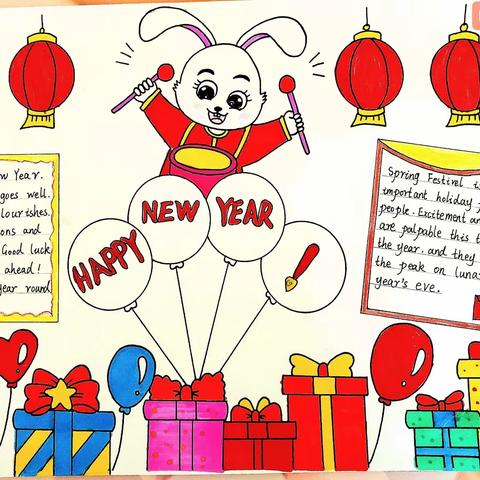 HAPPY
NEW
YEAR
w Year.
goes well.
lourishes.
ons and
Good luck
ahead!
year round
Spring Festivel i
important holiday
people. Excitement an
are palpable this t
the year, and they
the peak on luna
year's eve.